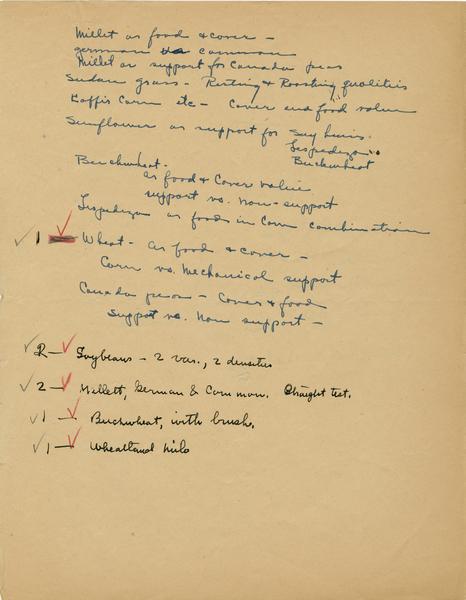 Millet as food & cover -
german vs common
Millet as support for Canada peas
Sudan grass - Resting & Roosting qualities
Kaffir Corn etc - Cover and food value
Sunflower as support for Soy beans.
Lespedeza "
Buckwheat
Buckwheat.
as food & Cover value
support vs. non-support
Lespedeza as food in Corn combination
1 - Wheat - as food & cover -
Corn vs. Mechanical support
Canada peas - Cover & food
Support vs. Non support -
2 - Soybeans - 2 var., 2 densities
2 - Millett, German & Common. Straight test.
1 - Buckwheat, with brush.
1 - Wheatland milo